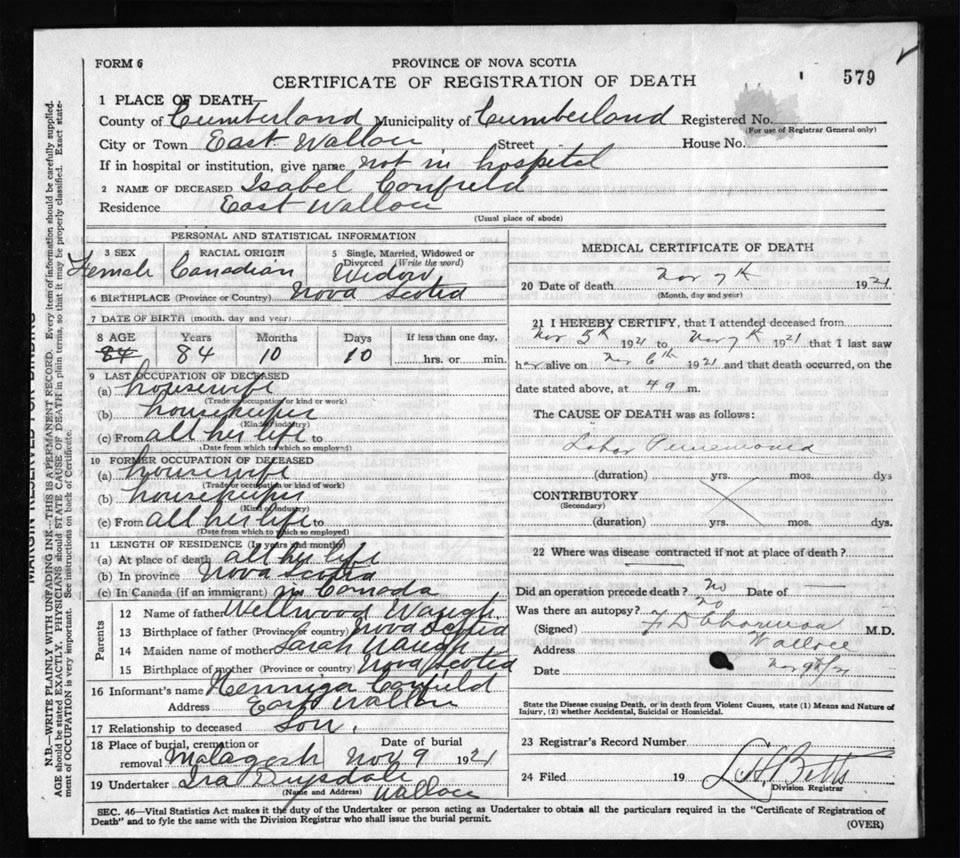 FORM 6
PROVINCE OF NOVA SCOTIA
CERTIFICATE OF REGISTRATION OF DEATH
579
1 PLACE OF DEATH—
County of Cumberland Municipality of Cumberland Registered No.
(For use of Registrar General only)
City or Town East Wallace Street House No.
If in hospital or institution, give name not in hospital
2 NAME OF DECEASED Isabel Canfield
Residence East Wallace
(Usual place of abode)
PERSONAL AND STATISTICAL INFORMATION
3 SEX RACIAL ORIGIN 5 Single, Married, Widowed or
Divorced (Write the word)
Female Canadian Widow
6 BIRTHPLACE (Province or Country) Nova Scotia
7 DATE OF BIRTH (month, day and year)
8 AGE Years Months Days If less than one day,
84 84 10 10 hrs. or min.
9 LAST OCCUPATION OF DECEASED
(a) housewife
(Trade or occupation or kind or work)
(b) housekeeper
(Kind of industry)
(c) From all her life to
(Date from which to which so employed)
10 FORMER OCCUPATION OF DECEASED
(a) housewife
(Trade or occupation or kind of work)
(b) housekeeper
(Kind of industry)
(c) From all her life to
(Date from which to which so employed)
11 LENGTH OF RESIDENCE (In years and months)
(a) At place of death all her life
(b) In province Nova Scotia
(c) In Canada (if an immigrant) in Canada
Parents
12 Name of father Wellwood Waugh
13 Birthplace of father (Province or country) Nova Scotia
14 Maiden name of mother Sarah Waugh
15 Birthplace of mother (Province or country) Nova Scotia
16 Informant's name Canfield
Address East Wallace
17 Relationship to deceased Son.
18 Place of burial, cremation or Date of burial
removal Malagash Nov 9 1921
19 Undertaker Ira Drysdale
(Name and Address) Wallace
MEDICAL CERTIFICATE OF DEATH
20 Date of death Nov 7th 1921
(Month, day and year)
21 I HEREBY CERTIFY, that I attended deceased from
Nov 5th 1921 to Nov 7th 1921 that I last saw
her alive on Nov 6th 1921 and that death occurred, on the
date stated above, at 4 a m.
The CAUSE OF DEATH was as follows:
Lobar Pneumonia
(duration) yrs. mos. dys
CONTRIBUTORY
(Secondary)
(duration) yrs. mos. dys.
22 Where was disease contracted if not at place of death?
Did an operation precede death? no Date of
Was there an autopsy? no
(Signed) M.D.
Address Wallace
Date Nov 9th/21
State the Disease causing Death, or in death from Violent Causes, state (1) Means and Nature of
Injury, (2) whether Accidental, Suicidal or Homicidal.
23 Registrar's Record Number
24 Filed 19 Betts
Division Registrar
SEC. 46—Vital Statistics Act makes it the duty of the Undertaker or person acting as Undertaker to obtain all the particulars required in the "Certificate of Registration of
Death" and to fyle the same with the Division Registrar who shall issue the burial permit.
(OVER)
MARGIN RESERVED FOR BINDING
N.B.—WRITE PLAINLY WITH UNFADING INK—THIS IS A PERMANENT RECORD. Every item of information should be carefully supplied.
AGE should be stated EXACTLY. PHYSICIANS should STATE CAUSE OF DEATH in plain terms, so that it may be properly classified. Exact state-
ment of OCCUPATION is very important. See instructions on back of Certificate.